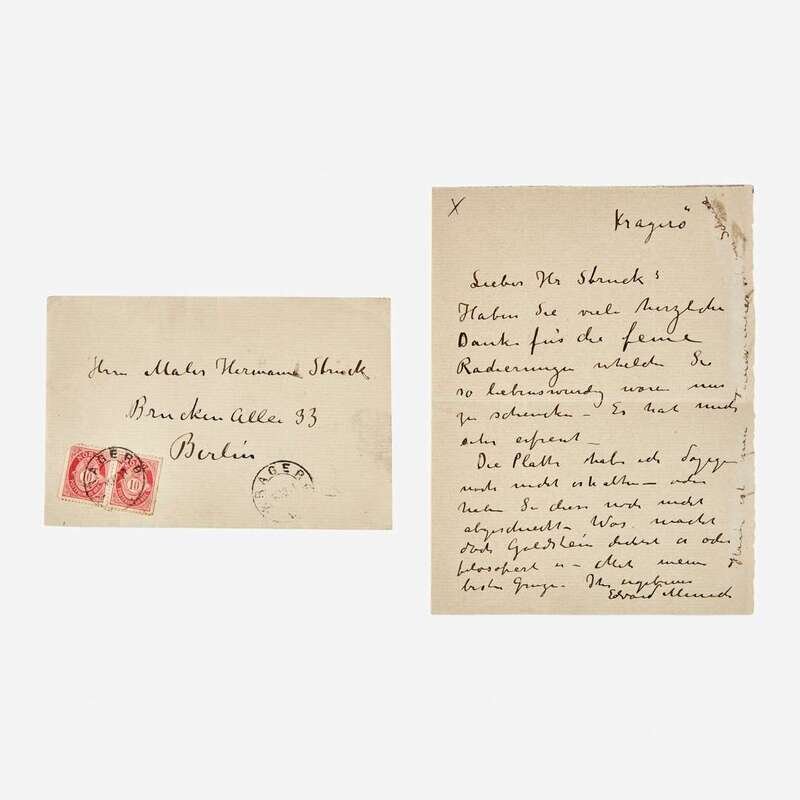 Herrn Maler Hermann Struck
Brucken Allee 33
Berlin
10
10
KRAGERØ
KRAGERØ
X
Kragerö
Lieber Hr Struck
Haben Sie viele herzliche
Dank für die feine
Radierungen welche Sie
so liebenswürdig waren mir
zu schencken – Es hat mich
sehr erfreut –
Die Platte habe ich dagegen
noch nicht erhalten – oder
haben Sie diese noch nicht
abgeschickt – Was macht
doch Goldstein dichtet er oder
filosofiert er – Mit meine
besten Grüsze Ihr ergebener
Edvard Munch
Hier ist
Schnee